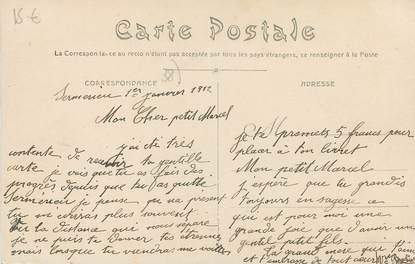 15 €
Carte Postale
La Correspondance au recto n'étant pas acceptée par tous les pays étrangers, se renseigner à la Poste
CORRESPONDANCE
ADRESSE
1er janvier 1912
Mon Cher petit Marcel
j'ai été très
contente de recevoir ta gentille
carte je vois que tu as fais des
progrès depuis que tu as quitté
je pense qu'a présent
tu me
plus souvent
la distance que nous sépare
je ne puis te donner tes étrennes
mais lorsque tu viendras me voir
je te promets 5 francs pour
placer à ton livret
Mon petit Marcel
J'espère que tu grandis
toujours en sagesse
qui est pour moi une
grande joie que d'avoir un
gentil petit fils
La grand mère qui t'aime
et t'embrasse de tout cœur